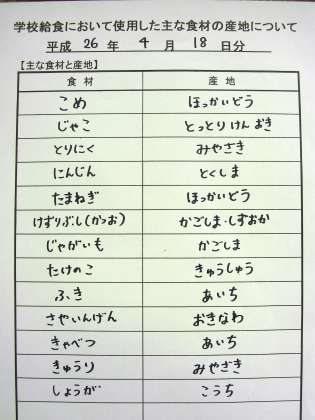 学校給食において使用した主な食材の産地について
平成 26 年 4 月 18 日分
【主な食材と産地】
食材 産地
こめ ほっかいどう
じゃこ とっとりけんおき
とりにく みやざき
にんじん とくしま
たまねぎ ほっかいどう
けずりぶし(かつお) かごしま・しずおか
じゃがいも かごしま
たけのこ きゅうしゅう
ふき あいち
さやいんげん おきなわ
きゃべつ あいち
きゅうり みやざき
しょうが こうち